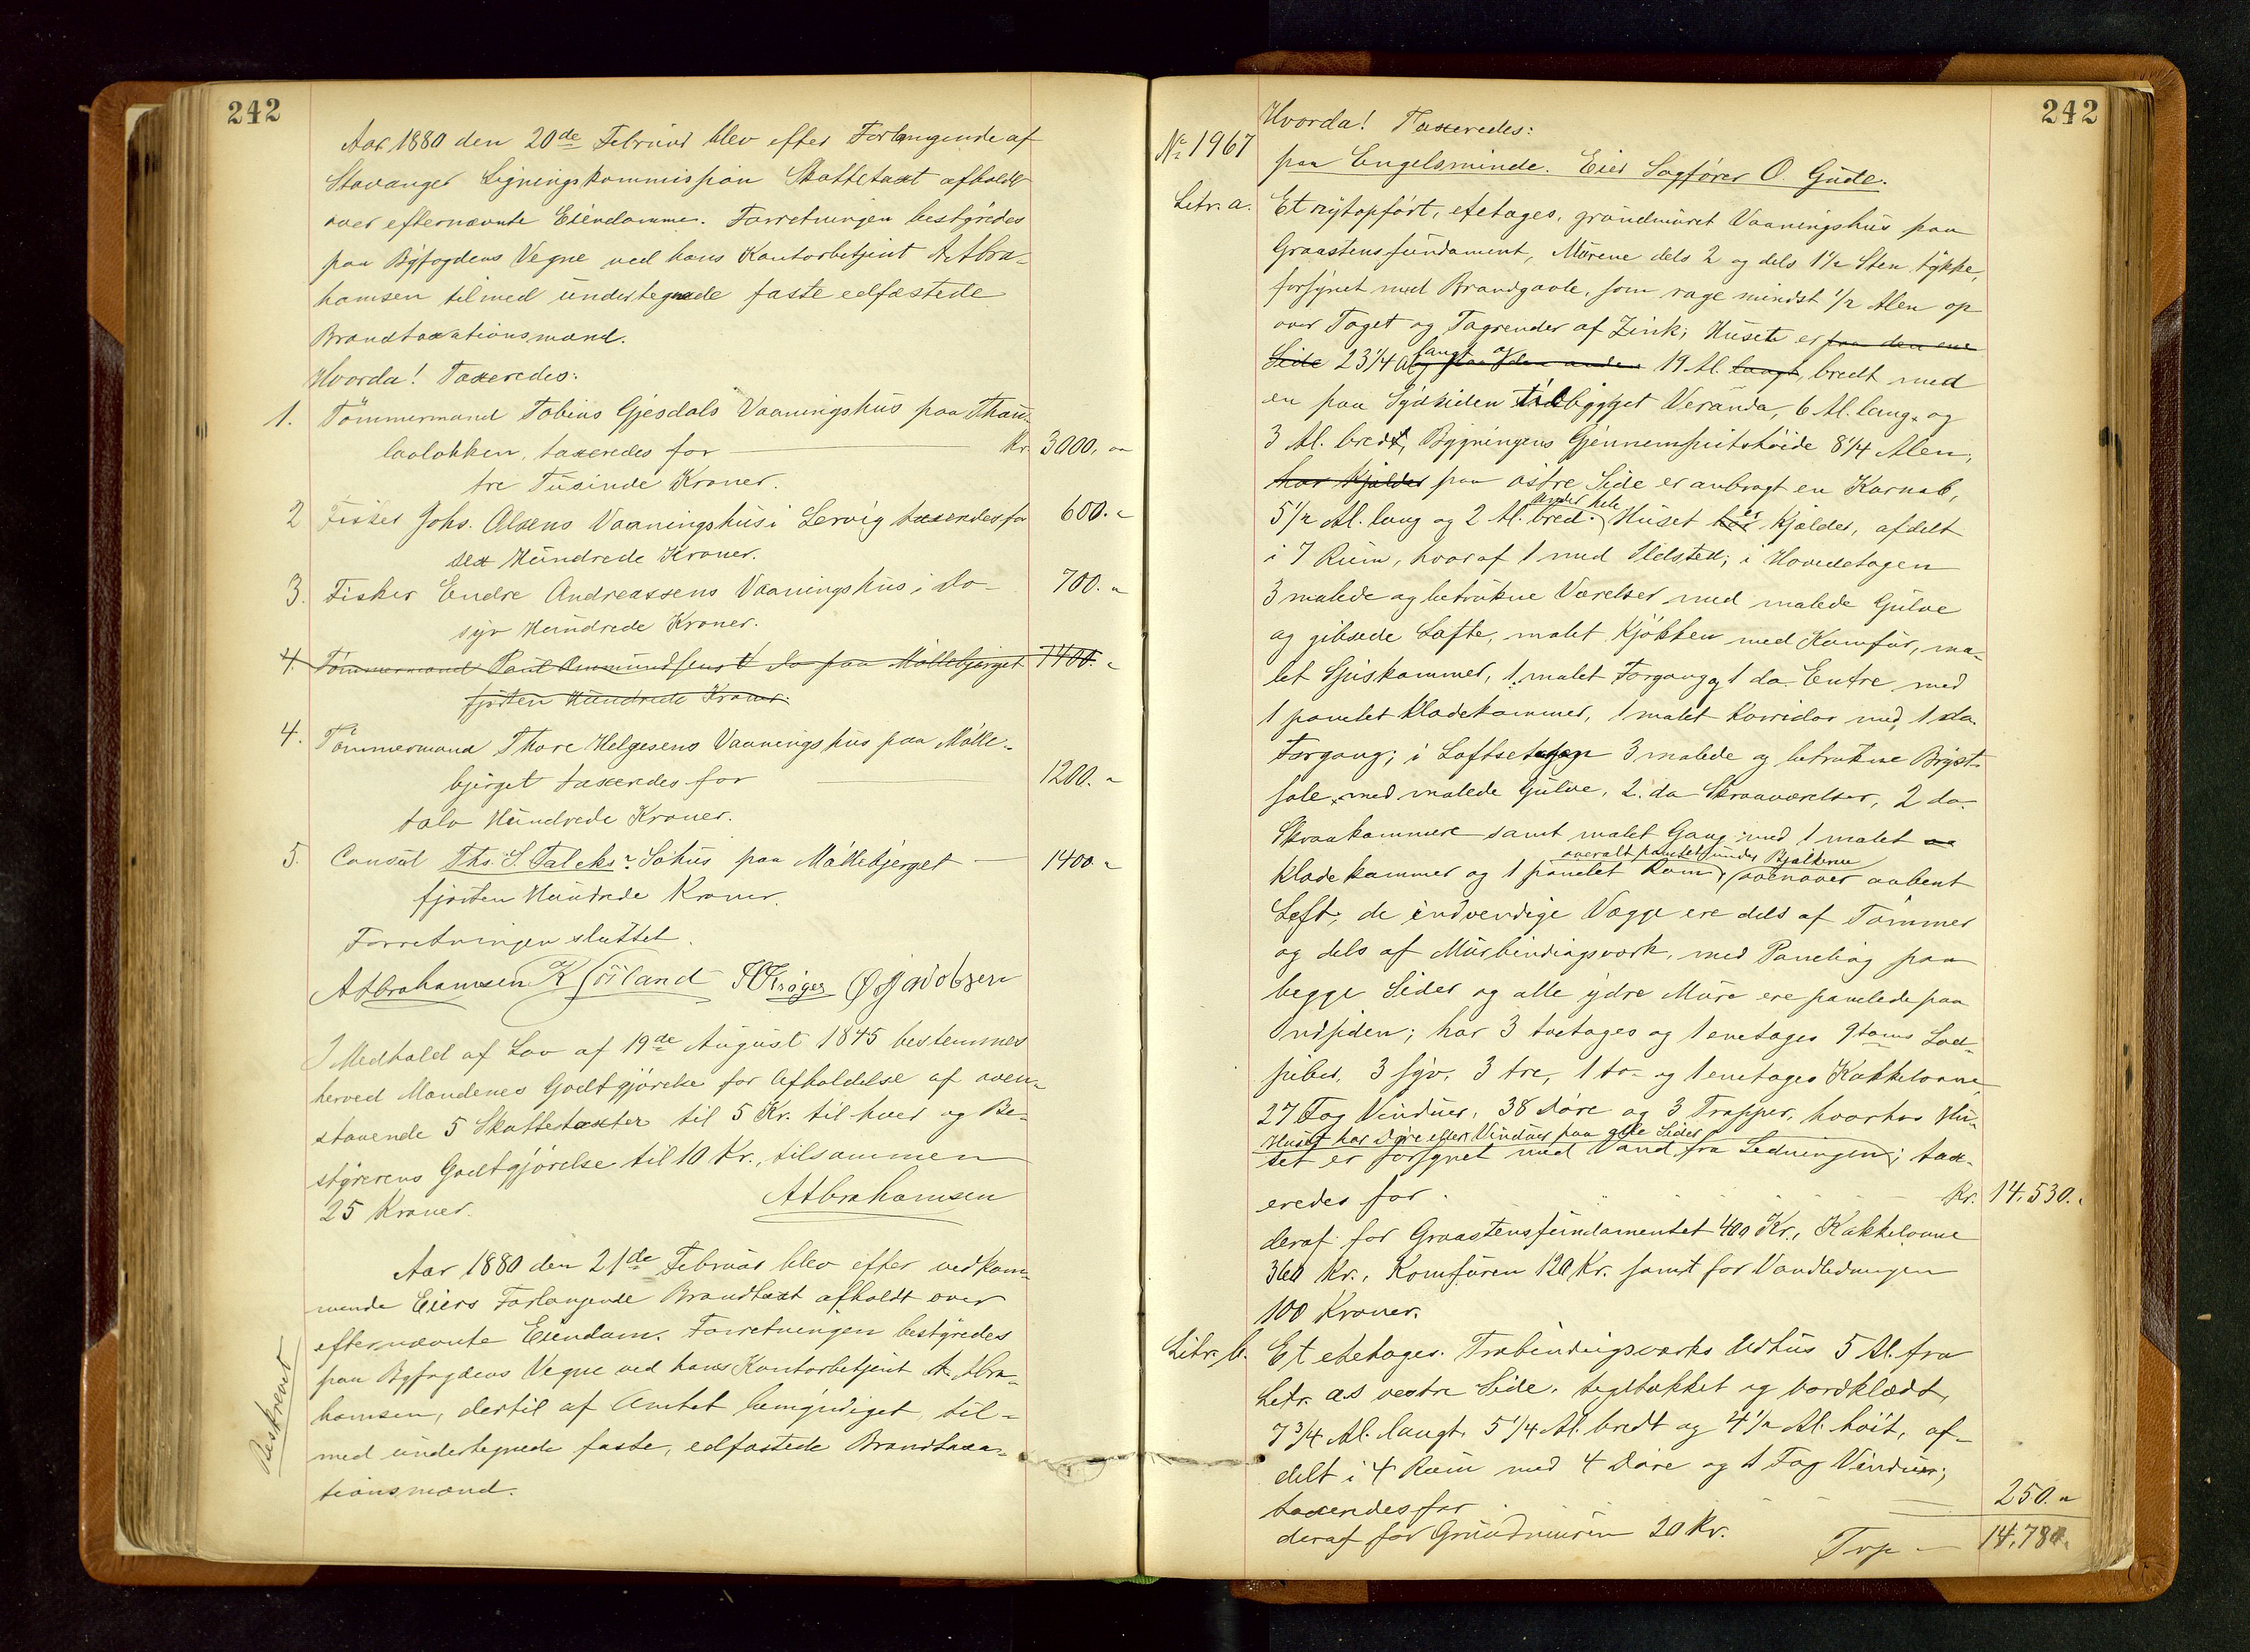 242
Aar 1880 den 20de Februar blev efter Forlangende af
Stavanger Ligningskommission Skattetaxt afholdt
over efternævnte Eiendomme. Forretningen bestyredes
paa Byfogdens Vegne ved hans Kontorbetjent A. Abra-
hamsen tilmed undertegnede faste edfæstede
Brandtaxationsmænd.
Hvorda! Taxeredes:
1. Tömmermand Tobias Gjesdals Vaaningshus paa Thau-
laoløkken, taxeredes for — Kr. 3000. "
tre Tusinde Kroner.
2 Fisker Johs. Olsens Vaaningshus i Lervig taxeredes for 600. "
sex Hundrede Kroner.
3. Fisker Endre Andreassens Vaaningshus i do — 700. "
syv Hundrede Kroner.
4. Tömmermand Paul Ommundsens V do paa Møllebjerget 1400. "
fjorten Hundrede Kroner.
4. Tömmermand Thore Helgesens Vaaningshus paa Mølle-
bjerget taxeredes for — 1200. "
tolv Hundrede Kroner.
5. Consul Ths. S. Falcks Søhus paa Møllebjerget — 1400 "
fjorten Hundrede Kroner.
Forretningen sluttet.
A Abrahamsen K Sörland Kröger O Jacobsen
I Medhold af Lov af 19de August 1845 bestemmes
herved Mændenes Godtgjörelse for Afholdelse af oven-
staaende 5 Skattetaxter til 5 Kr. til hver og Be-
styrerens Godtgjörelse til 10 Kr., tilsammen
25 Kroner. A Abrahamsen
Beskrevet
Aar 1880 den 21de Februar blev efter vedkom-
mende Eiers Forlangende Brandtaxt afholdt over
efternævnte Eiendom. Forretningen bestyredes
paa Byfogdens Vegne ved hans Kontorbetjent A. Abra-
hamsen, dertil af Amtet bemyndiget, til-
med undertegnede faste, edfæstede Brandtaxa-
tionsmænd.
242
Hvorda! Taxeredes:
No 1967 paa Engelsminde. Eier Sagfører O. Gude.
Litr. a. Et nytopført, etetages, grundmuret Vaaningshus paa
Graastensfundament, Murene dels 2 og dels 1 1/2 Sten tykke,
forsynet med Brandgavle, som rage mindst 1/2 Alen op
over Taget og Tagrender af Zink; Huset er paa den ene
Side 23 1/4 Al langt og og paa den anden 19 Al. langt, bredt med
en paa Sydsiden tilbygget Veranda, 6 Al. lang og
3 Al. bred, Bygningens Gjennemsnitshöide 8 1/4 Alen,
har Kjælder paa östre Side er anbragt en Karnab,
5 1/2 Al. lang og 2 Al. bred. under hele Huset har er Kjælder, afdelt
i 7 Rum, hvoraf 1 med Ildsted; i Hovedetagen
3 malede og betrukne Værelser med malede Gulve
og gibsede Lofte, malet Kjökken med Komfur, ma-
let Spiskammer, 1 malet Forgang og 1 do. Entre med
1 panelet Klædekammer, 1 malet Korridor med 1 do.
Forgang; i Loftsetagen 3 malede og betrukne Bryst-
sale, med malede Gulve, 2 do Skraaværelser, 2 do.
Skraakammere samt malet Gang med 1 malet
Klædekammer og 1 panelet Rum, overalt panelet under Bjælkerne ovenover aabent
Loft; de indvendige Vægge ere dels af Tömmer
og dels af Murbindingsværk, med Paneling paa
begge Sider og alle ydre Mure ere panelede paa
Indsiden; har 3 toetages og 1 enetages 9toms Lod-
piber, 3 syv, 3 tre, 1 to- og 1 enetages Kakkelovne
27 Fag Vinduer, 38 Döre og 3 Trapper, hvorhos Hu-
Huset har Döre eller Vinduer paa alle Sider
set er forsynet med Vand fra Ledningen; tax-
eredes for Kr. 14,530. "
deraf for Graastensfundamentet 400 Kr., Kakkelovne
360 Kr., Komfuren 120 Kr. samt for Vandledningen
100 Kroner.
Litr. b. Et etetages Træbindingsværks Udhus 5 Al. fra
Litr. as vestre Side, tegltækket og bordklædt,
7 3/4 Al. langt, 5 1/4 Al. bredt og 4 1/2 Al. höit, af-
delt i 4 Rum med 4 Döre og 1 Fag Vinduer;
taxeredes for — 250. "
deraf for Grundmuren 20 Kr.
Trp — 14,780.